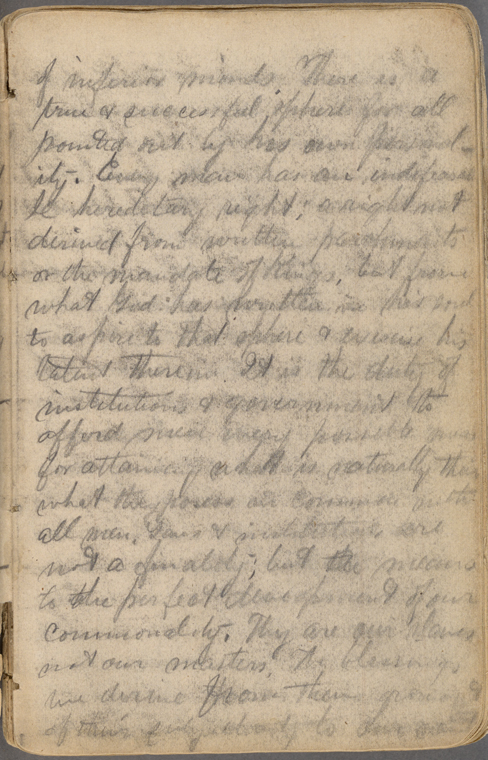 of inferior minds. There is a
true & successful sphere for all
pointed out by his own personal-
ity. Every man has an
hereditary right; a right not
derived from written parchments
or the mandate of Kings, but from
what God has written in his soul
to aspire to that sphere & exercise his
talent therein. It is the duty of
institutions & government to
afford men every possible
for attaining what is naturally
what they possess in common with
all men. Laws & institutions are
not a finality; but the means
to the perfect development of our
commonality. They are our slaves
not our masters. The blessings
we derive from them
of their to our